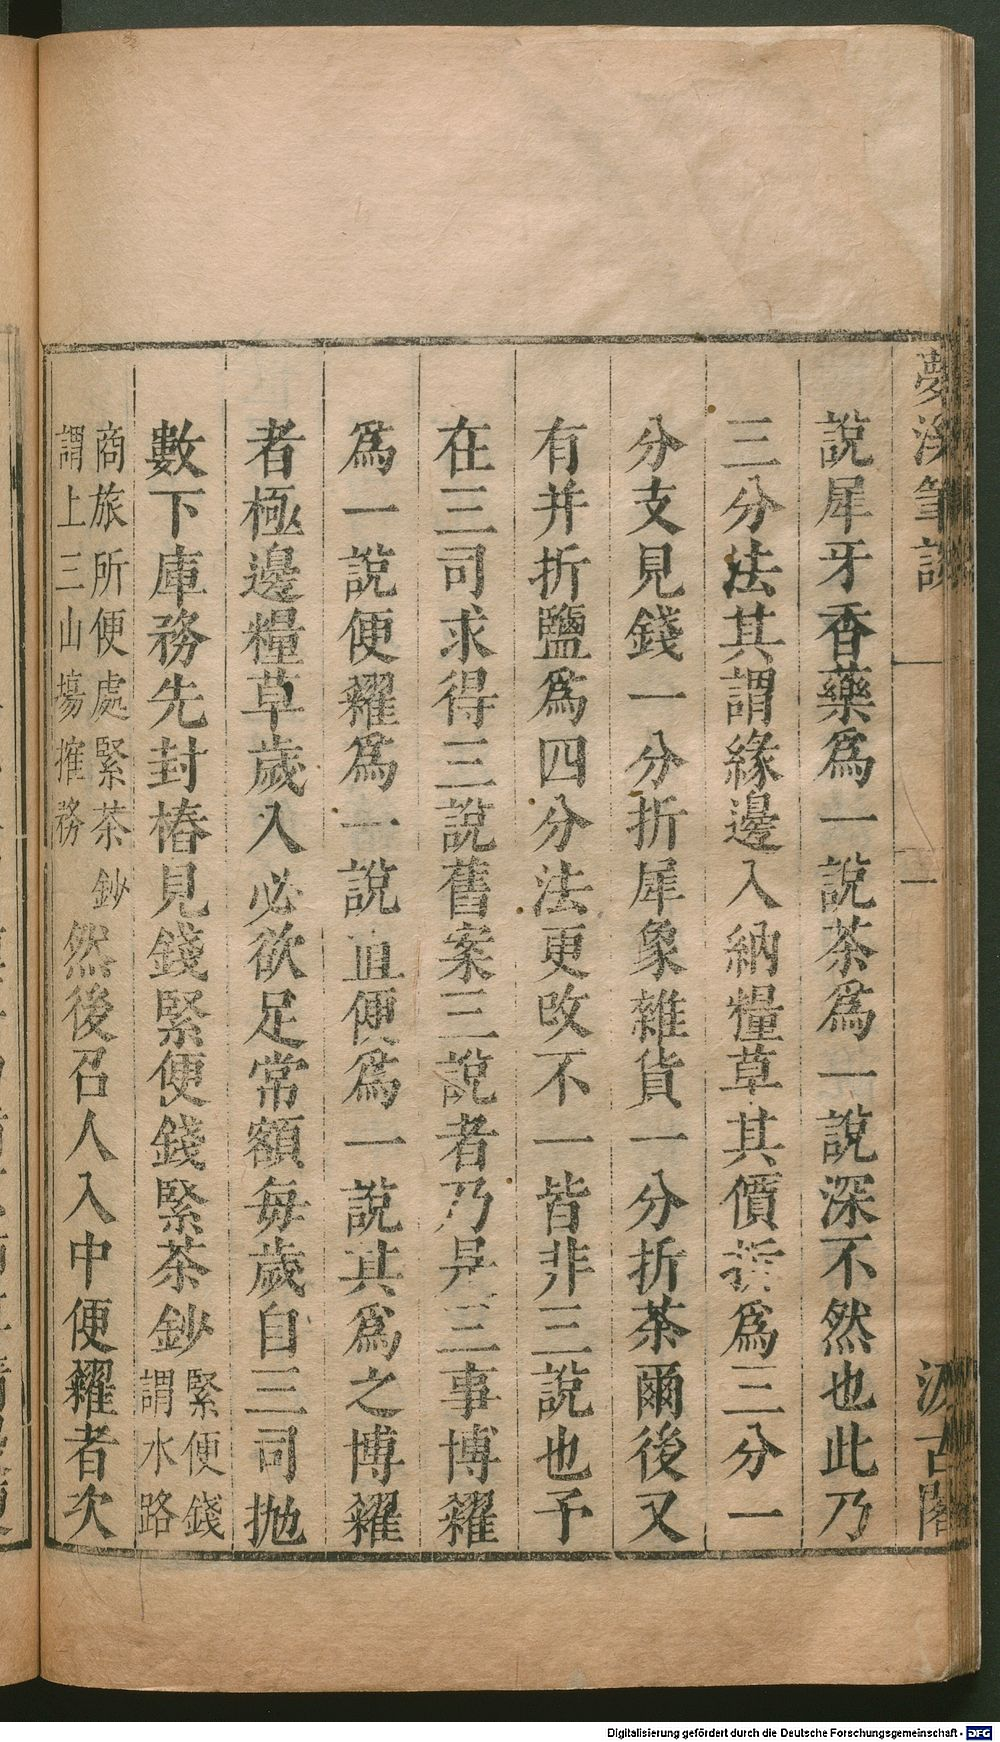 夢溪筆談 一 汲古閣
說犀牙香藥爲一說茶爲一說深不然也此乃
三分法其謂緣邊入納糧草其價折爲三分一
分支見錢一分折犀象雜貨一分折茶爾後又
有并折鹽爲四分法更改不一皆非三說也予
在三司求得三說舊案三說者乃是三事博糴
爲一說便糴爲一說直便爲一說其爲之博糴
者極邊糧草歲入必欲足常額每歲自三司抛
數下庫務先封樁見錢緊便錢緊茶鈔
緊便錢
謂水路
商旅所便處緊茶鈔
謂上三山場搉務
然後召人入中便糴者次
Digitalisierung gefördert durch die Deutsche Forschungsgemeinschaft - DFG